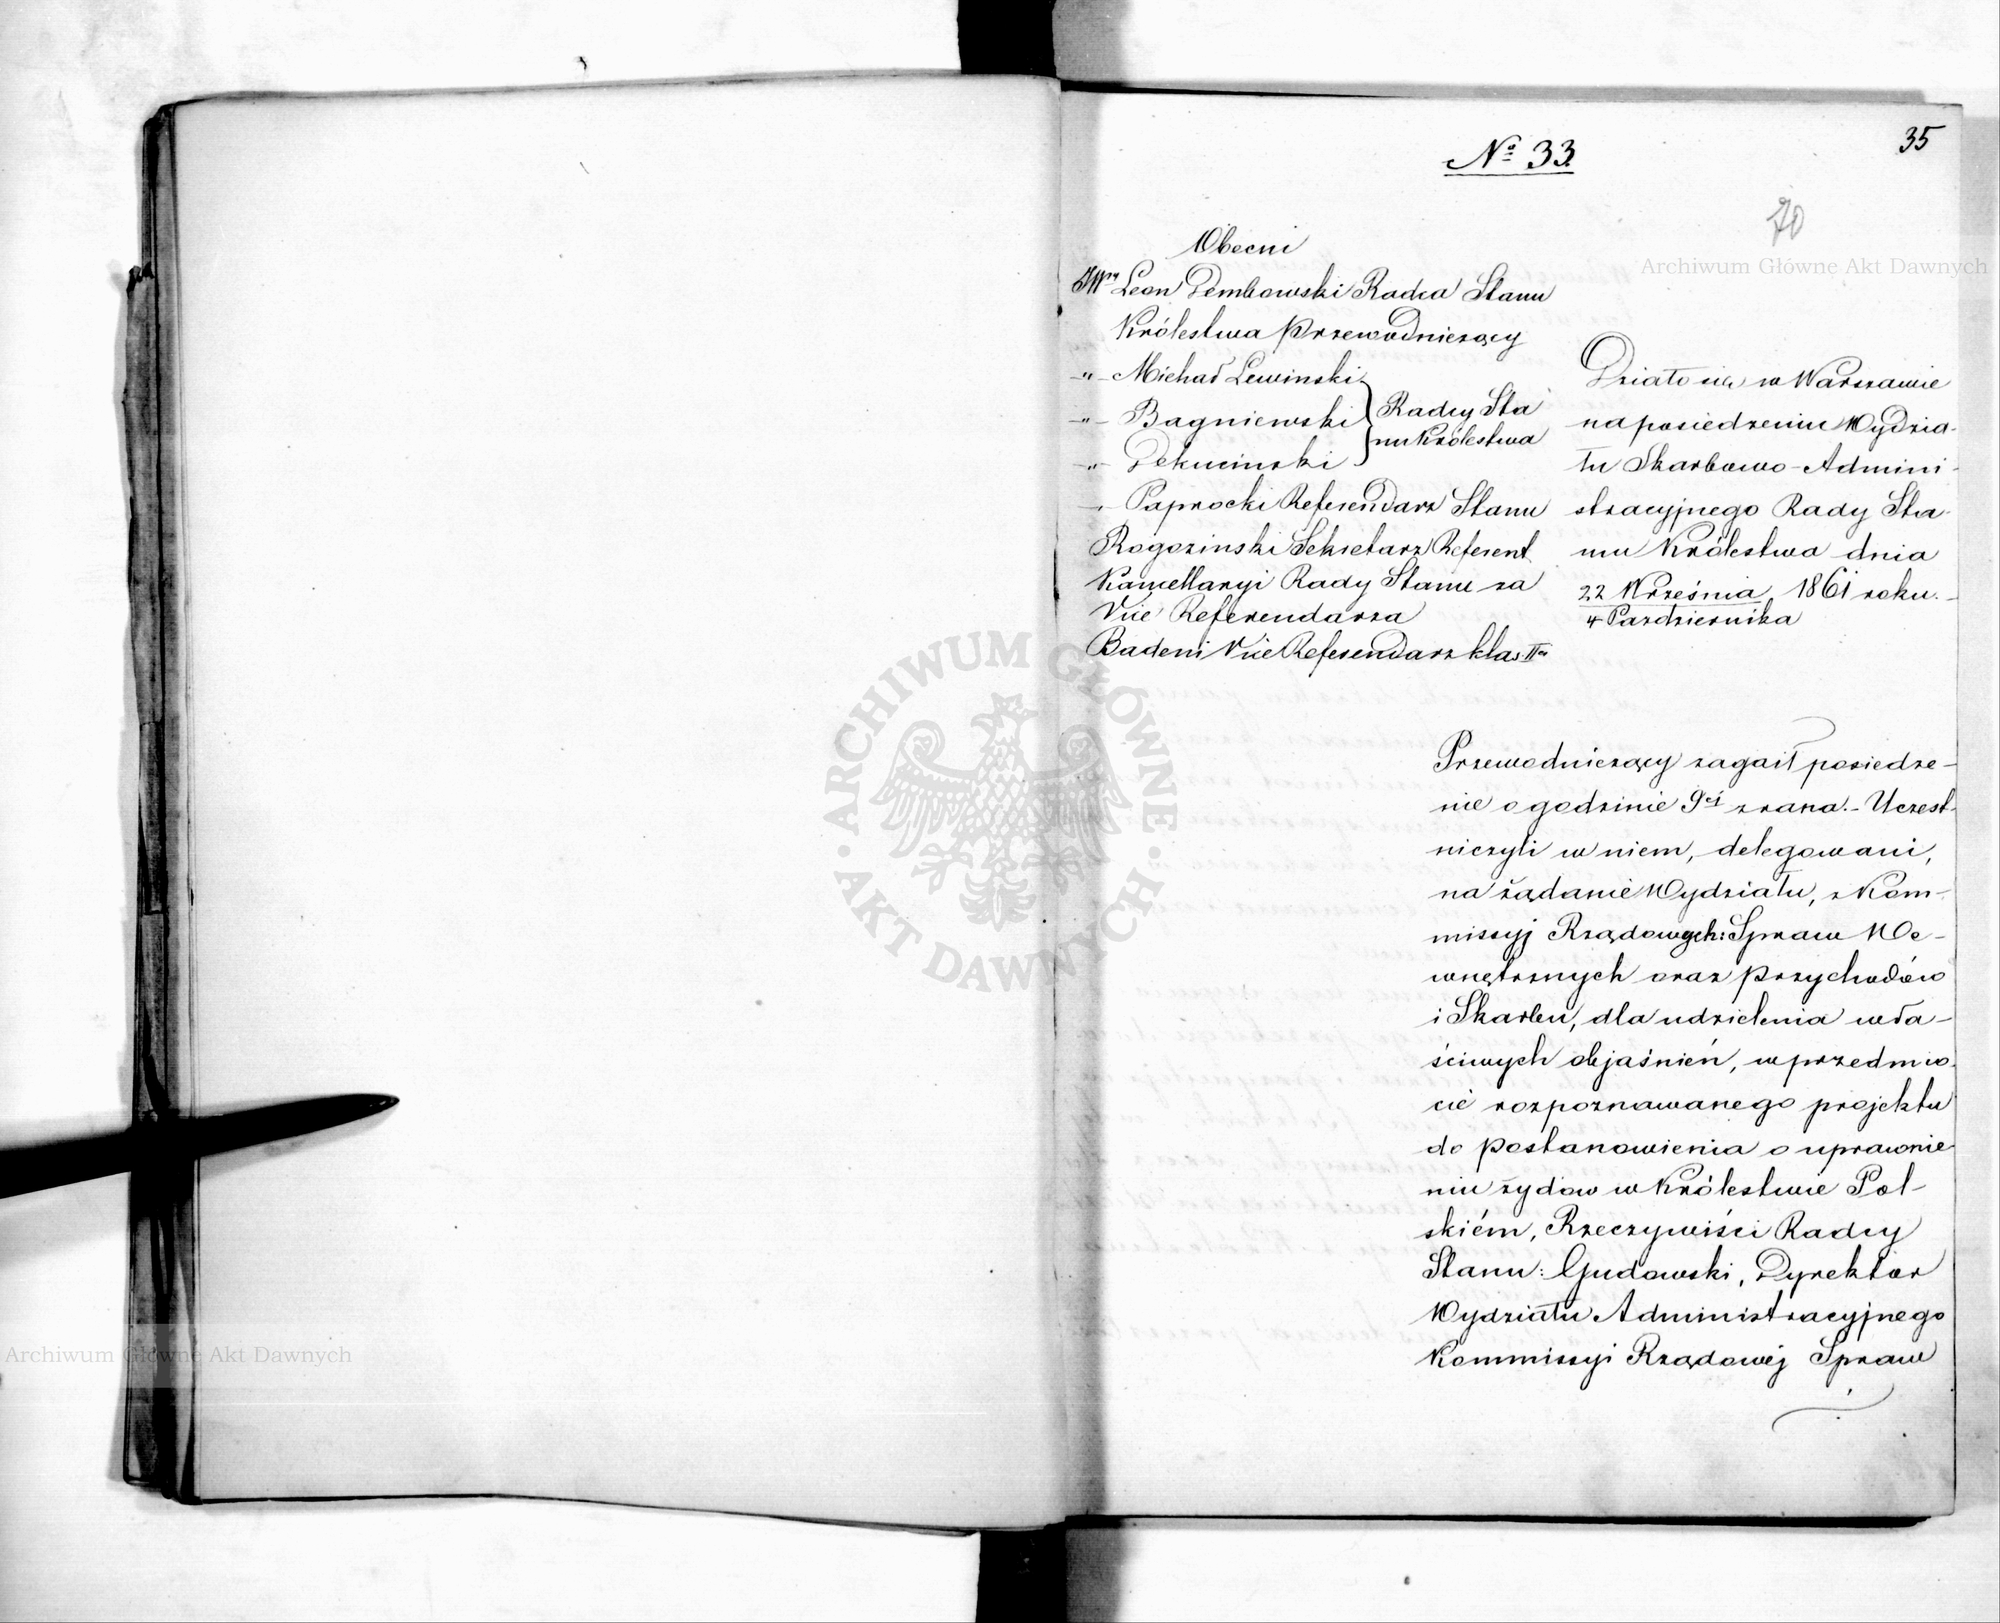 35
№ 33.
70
Obecni
JWny Leon Dembowski Radca Stanu
Królestwa Przewodniczący
-"- Michał Lewinski
-"- Bagniewski
-"- Dekucinski
Radcy Sta
nu Królestwa
-"- Paprocki Referendarz Stanu
Rogozinski Sekretarz Referent
Kancellaryi Rady Stanu za
Vice Referendarza
Badeni Vice Referendarz klas. IIéj
Działo się w Warszawie
na posiedzeniu Wydzia-
łu Skarbowo-Admini-
stracyjnego Rady Sta-
nu Królestwa dnia
22 Września 1861 roku.-
4 Pazdziernika
Przewodniczący zagaił posiedze-
nie o godzinie 9éj z rana.- Uczest-
niczyli w niem, delegowani,
na żądanie Wydziału, z Kom-
missyj Rządowych: Spraw We-
wnętrznych oraz Przychodów
i Skarbu, dla udzielenia wła-
ściwych objaśnień, w przedmio-
cie rozpoznawanego projektu
do postanowienia o uprawnie
niu żydow w Królestwie Pol-
skiém, Rzeczywiści Radcy
Stanu: Gudowski, Dyrektor
Wydziału Administracyjnego
Kommissyi Rządowéj Spraw
Archiwum Główne Akt Dawnych
Archiwum Główne Akt Dawnych
ARCHIWUM GŁÓWNE · AKT DAWNYCH ·